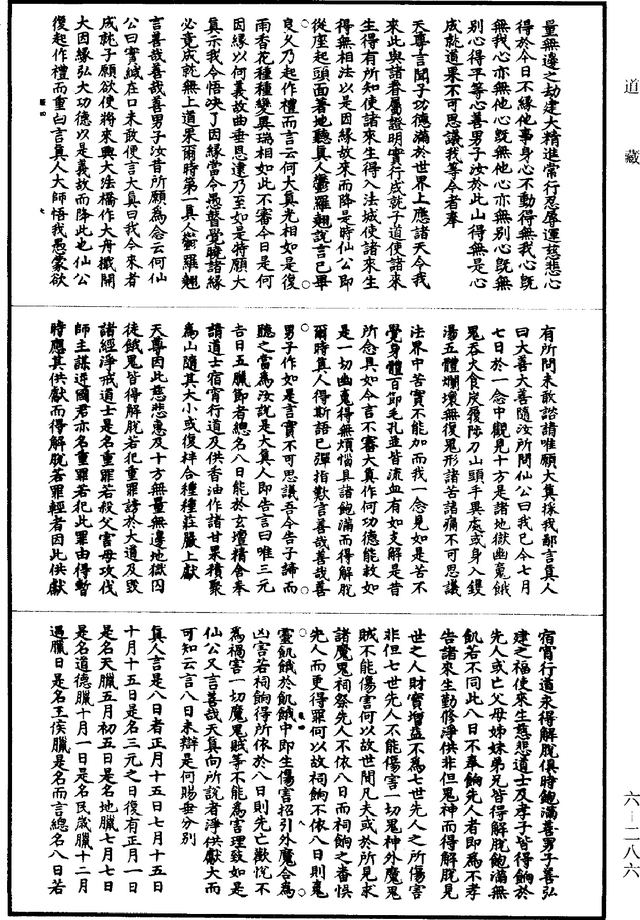 量無邊之劫建大精進常行忍辱運慈悲心
得於今日不緣他事身心不動得無我心旣
無我心亦無他心旣無他心亦無別心旣無
別心得平等心善男子汝於此山得無是心
成就道果不可思議我等今者奉
天尊言聞子功德滿於世界上應諸天令我
來此與諸眷屬證明實行成就子道使諸來
生得有所知使諸來生得入法城使諸來生
得無相法以是因緣故來而降是時仙公即
從座起頭面著地聽真人鬱羅翹說言已畢
良久乃起作禮而言云何大真光相如是復
雨香花種種變異瑞相如此不審今日是何
因緣以何義故曲垂恩逮乃至如是特願大
真示我令悟決了因緣當令愚瞽覺曉諸緣
必竟成就無上道果爾時第一真人鬱羅翹
言善哉善哉善男子汝昔所願為念云何仙
公曰實緘在口未敢便言大真曰我今來者
成就子願欲使將來興大法橋作大舟檝開
大因緣弘大功德以是義故而降此也仙公
復起作禮而重白言真人大師悟我愚蒙欲
有所問未敢諮請唯願大真採我鄙言真人
曰大善大善隨汝所問仙公曰我已今七月
七日於一念中觀見十方是諸地獄幽魂餓
鬼吞火食炭履陟刀山頭手異處或身入鑊
湯五體爛壞無復鬼形諸苦諸痛不可思議
法界中苦實不能加而我一念見如是苦不
覺身體百節毛孔並皆流血有如支解是昔
所愈具如今言不審大真作何功德能救如
是一切幽魂得無煩惱具諸飽滿而得解脫
爾時真人得斯語已彈指歎言善哉善哉善
男子作如是言實不可思議吾今告子諦而
聽之當為汝說是大真人即告言曰唯三元
吉日五臘節者總名八日能於玄壇精舍奉
請道士宿宵行道及供香油作諸甘果積聚
為山隨其大小或復拌合種種莊嚴上獻
天尊因此慈悲惠及十方無量無邊地獄囚
徒餓鬼皆得解脫若犯重罪謗於大道及毀
諸經淨戒道士是名重罪若殺父害母攻伐
師主謀逆國君亦名重罪若犯此罪由得暫
時應其供獻而得解脫若罪輕者因此供獻
宿宵行道永得解脫俱時飽滿善男子善弘
建之福使來生慈悲道士及孝子皆得餉於
先人或亡父母姊妹弟兄皆得解脫飽滿無
飢若不同此八日不奉餉先人者即為不孝
告諸來生勤修淨供非但鬼神而得解脫見
世之人財寶增益不為七世先人之所傷害
非但七世先人不能傷害一切鬼神外魔鬼
賊不能傷害何以故世間凡夫或於所見求
諸魔鬼祠祭先人不依八日而祠餉之番悞
先人而更得罪何以故祠餉不依八日則鬼
靈飢餓於飢餓中即生傷害招引外魔合為
凶害若祠餉得所依於八日則先亡歡悅不
為禍害一切魔鬼賊等不能為害理致如是
仙公又言善哉大真向所說者淨供獻大而
可知云言八日未辯是何賜垂分別
真人言是八日者正月十五日七月十五日
十月十五日是名三元之日復有正月一日
是名天臘五月初五日是名地臘七月七日
是名道德臘十月一日是名民歲臘十二月
遇臘日是名王侯臘是名而言總名八日若
道藏
六-二八六